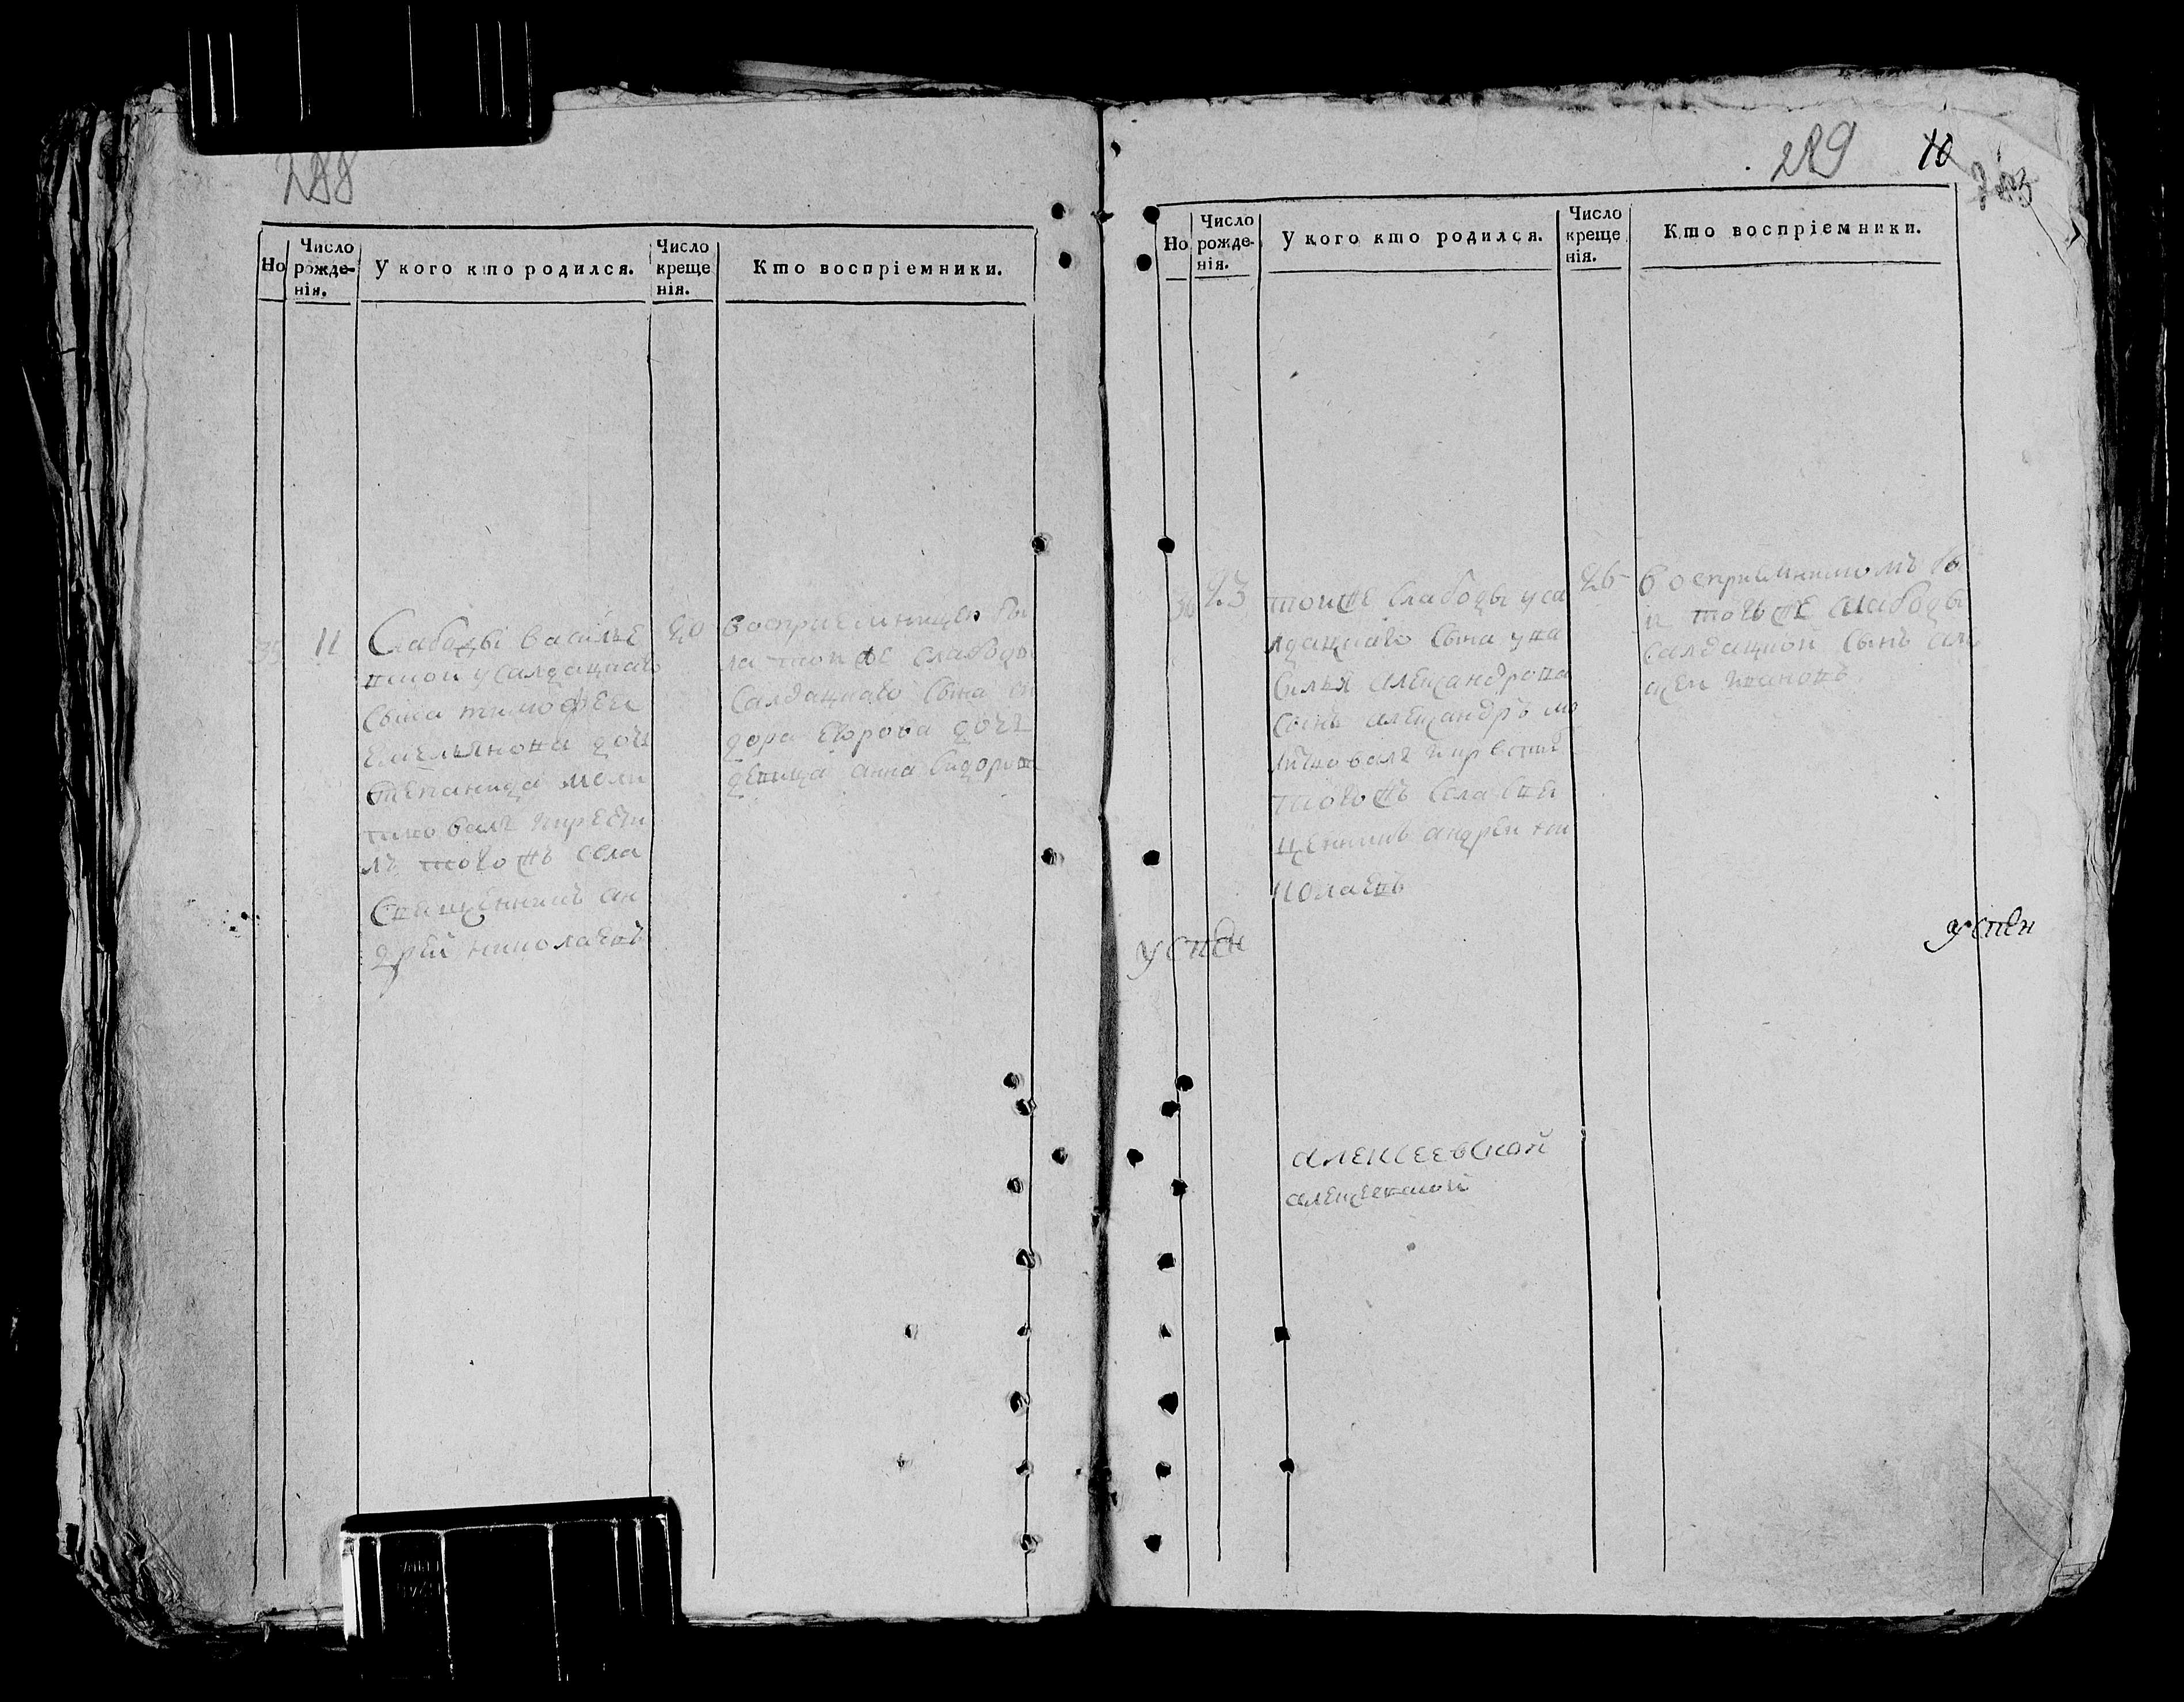 288
Но
Число рожденія.
У кого кто родился.
Число крещенія.
Кто воспріемники.
35
11
20
Слабоды василье
вкои у салдацкаго
сына тимофеи
емельянова дочь
степанида моли
твовалъ икрести
лъ того жъ села
священникъ ан
дрѣй николаевъ
восприемницею бы
ла тои же слабоды
салдацкаго сына си
дора егорова дочь
девица анна сидорова
289
10
Но
Число рожденія.
У кого кто родился.
Число креще нія.
Кто воспріемники.
36
23
26
тои же слабоды у са
лдацкаго сына у ва
силья александрова
сынъ александръ мо
литвовалъ икрестил
того жъ села свя
щенникъ андреи ни
колаевъ
восприемникомъ бы
л тои же слабоды
салдацкои сынъ ал
ѣкеи ивановъ
успен
успен
алексеевской